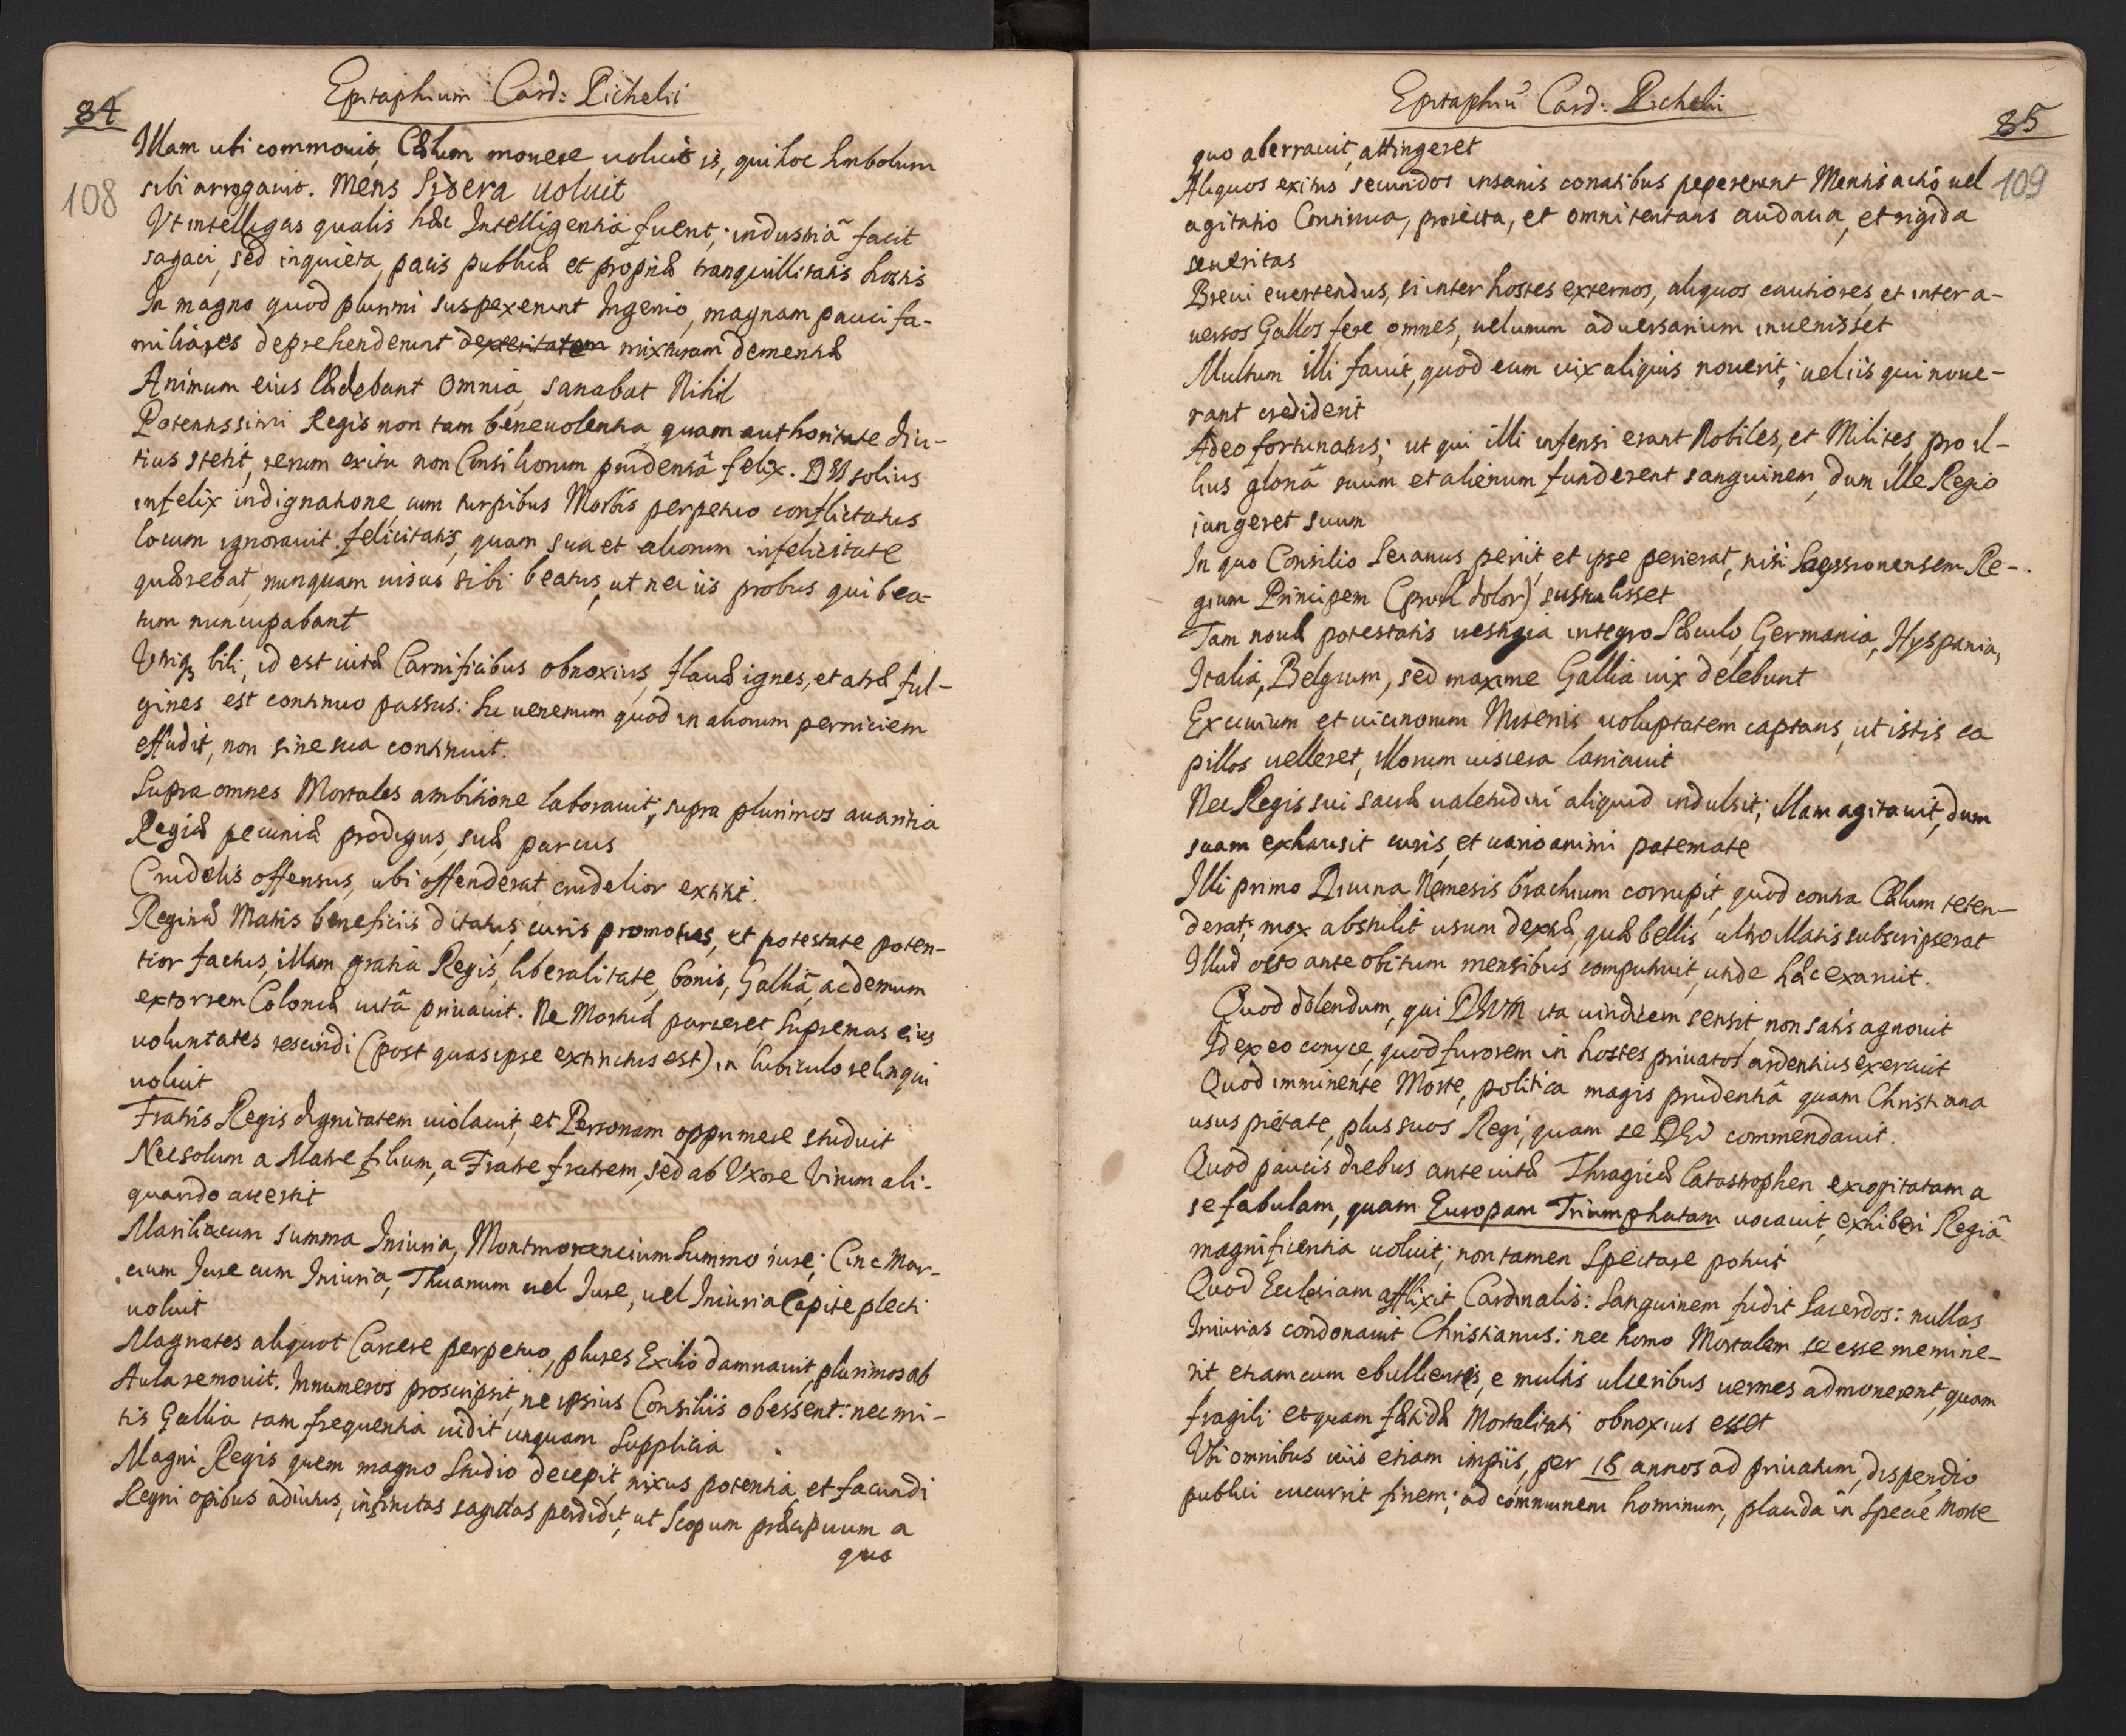 84
Epitaphium Card: Richelii
Illam ubi commouit, Cælum mouere uoluit is, qui hoc Simbolum
108
sibi arrogauit. Mens Sidera uoluit
Vt intelligas qualis hæc Intelligentia fuerit; industriâ facit
sagaci, sed inquieta, pacis publicæ et propriæ tranquillitatis hostis
In magno quod plurimi suspexerunt Ingenio, magnam pauci fa-
miliares deprehenderunt dexteritatem mixturam dementiæ
Animum eius lædebant Omnia, sanabat Nihil
Potentissimi Regis non tam beneuolentia quam authoritate diu-
tius stetit, rerum exitu non Consiliorum prudentiâ felix. DEI solius
infelix indignatione, cum turpibus Morbis perpetuo conflictatus
locum ignorauit felicitatis, quam sua et aliorum infelicitate
quærebat, nunquam uisus sibi beatus, ut nec iis probus qui bea-
tum nuncupabant
Vtriq; bili, id est uitæ Carnificibus obnoxius, flauæ ignes, et atræ ful-
gines est continuo passus: Sic uenenum quod in aliorum perniciem
effudit, non sine sua continuit.
Supra omnes Mortales ambitione laborauit; supra plurimos auaritia
Regiæ pecuniæ prodigus, suæ parcus
Crudelis offensus, ubi offenderat crudelior extitit.
Reginæ Matris beneficiis ditatus, curis promotus, et potestate poten-
tior factus, illam gratia Regis, liberalitate, bonis, Galliâ, ac demum
extorrem Coloniæ uitâ priuauit. Ne Mortuæ parceret, Supremas eius
uoluntates rescindi (post quas ipse extinctus est) in Cubiculo relinqui
uoluit
Fratris Regis dignitatem uiolauit, et Personam opprimere studuit
Nec solum a Matre filium, a Fratre fratrem, sed ab Vxore Virum ali-
quando auertit
Marillacum summa Iniuria, Montmorencium Summo iure; Cinc Mar-
cium Iure cum Iniuria, Thuanum uel Iure, uel Iniuria Capite plecti
uoluit
Magnates aliquot Carcere perpetuo, plures Exilio damnauit, plurimos ab
Aula remouit. Innumeros proscripsit, ne ipsius Consiliis obessent: nec mi-
tis Gallia tam frequentia uidit unquam Supplicia
Magni Regis quem magno Studio decepit, nixus potentia et facundi
Regni opibus adiutus, infinitas sagittas perdidit, ut Scopum præcipuum a
quo
85
Epitaphiũ Card: Richelii
quo aberrauit, attingeret
109
Aliquos exitus secundos insanis conatibus pepererunt Mentis actio uel
agitatio Continua, proiecta, et omnitentans audacia, et rigida
seueritas
Breui euertendus, si inter hostes externos, aliquos cautiores, et inter a-
uersos Gallos, fere omnes, uel unum aduersarium inuenisset
Multum illi fauit, quod eum uix aliquis nouerit; uel iis qui noue-
rant crediderit
Adeo fortunatus; ut qui illi infensi erant Nobiles, et Milites, pro il-
lius gloriâ suum et alienum funderent sanguinem, dum ille Regio
iungeret suum
In quo Consilio Seianus periit, et ipse perierat, nisi Saessionensem Re-
gium Principem (proh dolor) sustulisset
Tam nouæ potestatis uestigia integro Sæculo, Germania, Hyspania,
Italia, Belgium, sed maxime Gallia uix delebunt
Ex ciuium et uicinorum Miseriis uoluptatem captans, ut istis ca
pillos uelleret, illorum uiscera laniauit
Nec Regis sui sacræ ualetudini aliquid indulsit; illam agitauit, dum
suam exhausit curis, et uario animi patemate
Illi primo Diuina Nemesis brachium corrupit, quod contra Cælum teten-
derat; mox abstulit usum dextræ, quæ bellis ultro Matis subscripserat
Illud octo ante obitum mensibus computruit, unde hæc exaruit.
Quod dolendum, qui DEUM ita uindicem sensit, non satis agnouit
Id ex eo conyce, quod furorem in hostes priuatos ardentius exercuit
Quod imminente Morte, politica magis prudentiâ quam Christiana
usus pietate, plus suos Regi, quam se DEO commendauit.
Quod paucis diebus ante uitæ Thragicæ Catastrophen excogitatam a
se fabulam, quam Europam Triumphatam uocauit, exhiberi Regiâ
magnificentia uoluit; non tamen Spectare potuit
Quod Ecclesiam afflixit Cardinalis: Sanguinem fudit Sacerdos: nullas
Iniurias condonauit Christianus: nec homo Mortalem se esse memine-
rit etiam cum ebullientes, e multis ulceribus uermes admonerent, quam
fragili et quam fætidæ Mortalitati obnoxius esset
Vti omnibus uiis etiam impiis, per 18 annos ad priuatum, dispendio
publici cucurrit finem; ad communem hominum, placida in Specie Morte